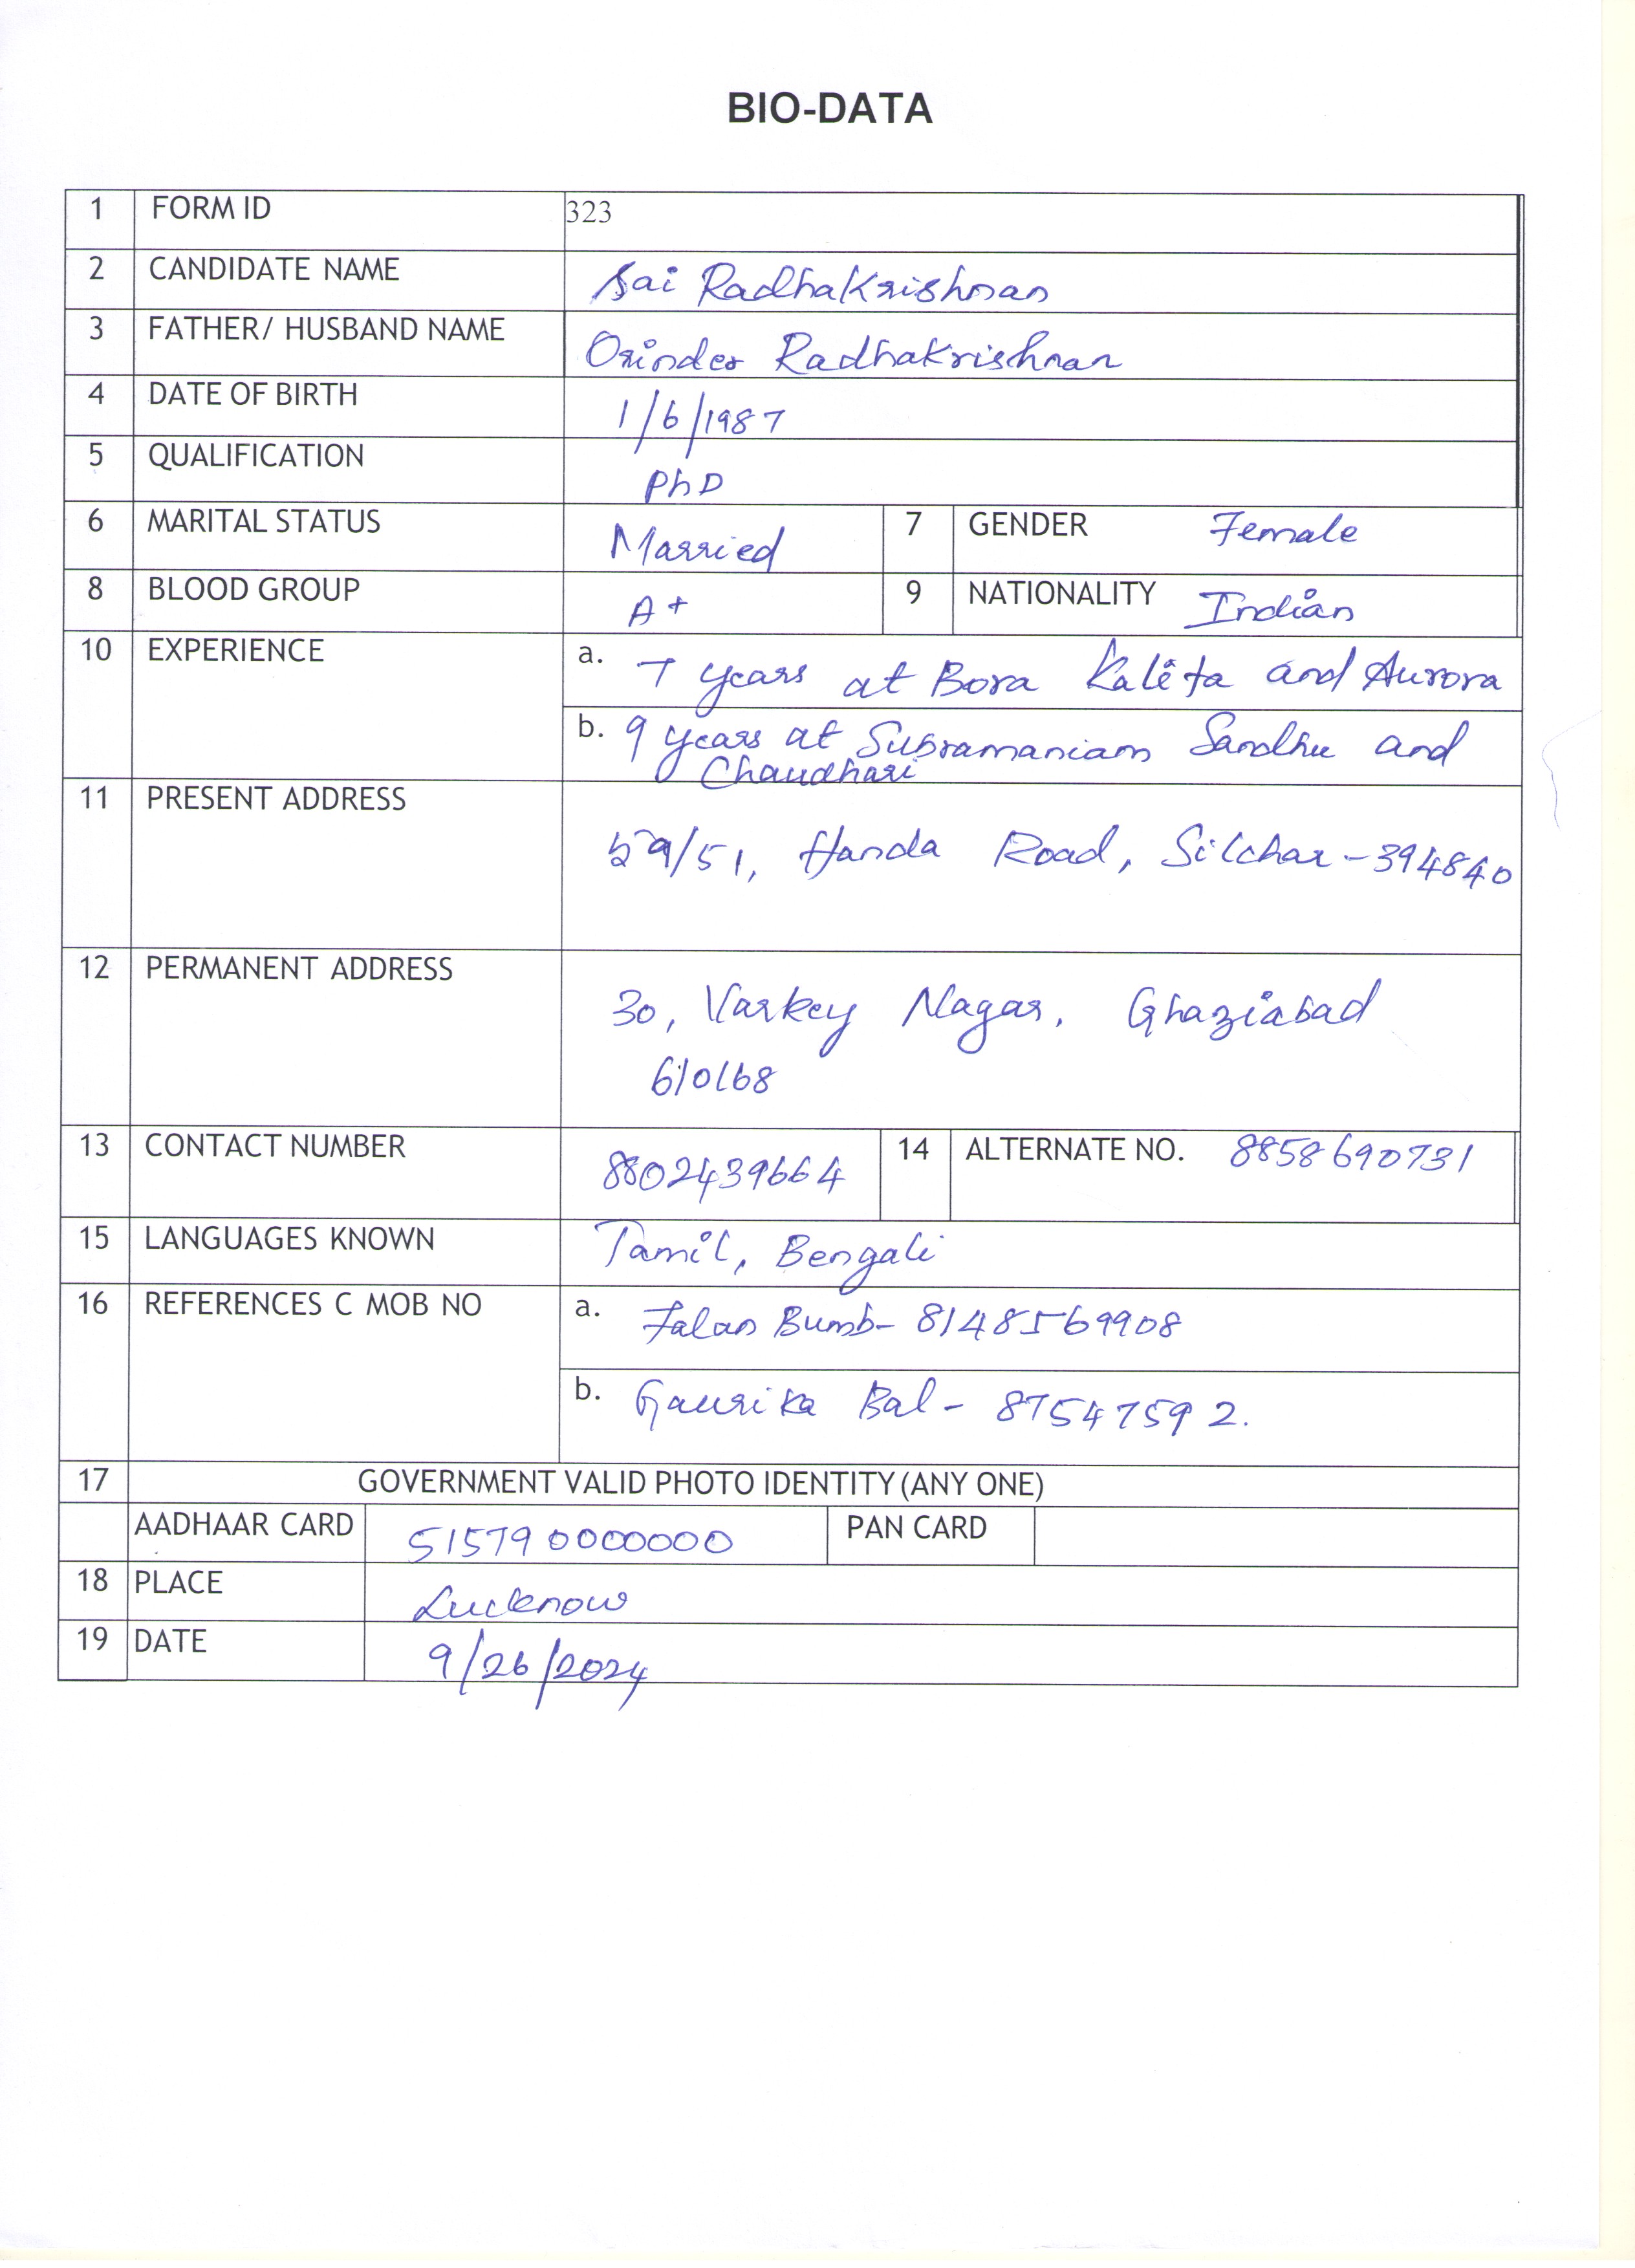 BIO-DATA
1 FORM ID 323
2 CANDIDATE NAME Sai Radhakrishnan
3 FATHER/ HUSBAND NAME Orinder Radhakrishnan
4 DATE OF BIRTH 1/6/1987
5 QUALIFICATION PhD
6 MARITAL STATUS Married 7 GENDER Female
8 BLOOD GROUP A+ 9 NATIONALITY Indian
10 EXPERIENCE a. 7 years at Bora Kalita and Aurora
b. 9 years at Subramaniam Sandhu and
Chaudhari
11 PRESENT ADDRESS
/51, Handa Road, Silchar - 394840
12 PERMANENT ADDRESS
30, Varkey Nagar, Ghaziabad
610168
13 CONTACT NUMBER 8802439664 14 ALTERNATE NO. 8858690731
15 LANGUAGES KNOWN Tamil, Bengali
16 REFERENCES C MOB NO a. Falan Bumb- 8148569908
b. Gaurika Bal - 87547592.
17 GOVERNMENT VALID PHOTO IDENTITY (ANY ONE)
AADHAAR CARD 515790000000 PAN CARD
18 PLACE Lucknow
19 DATE 9/26/2024